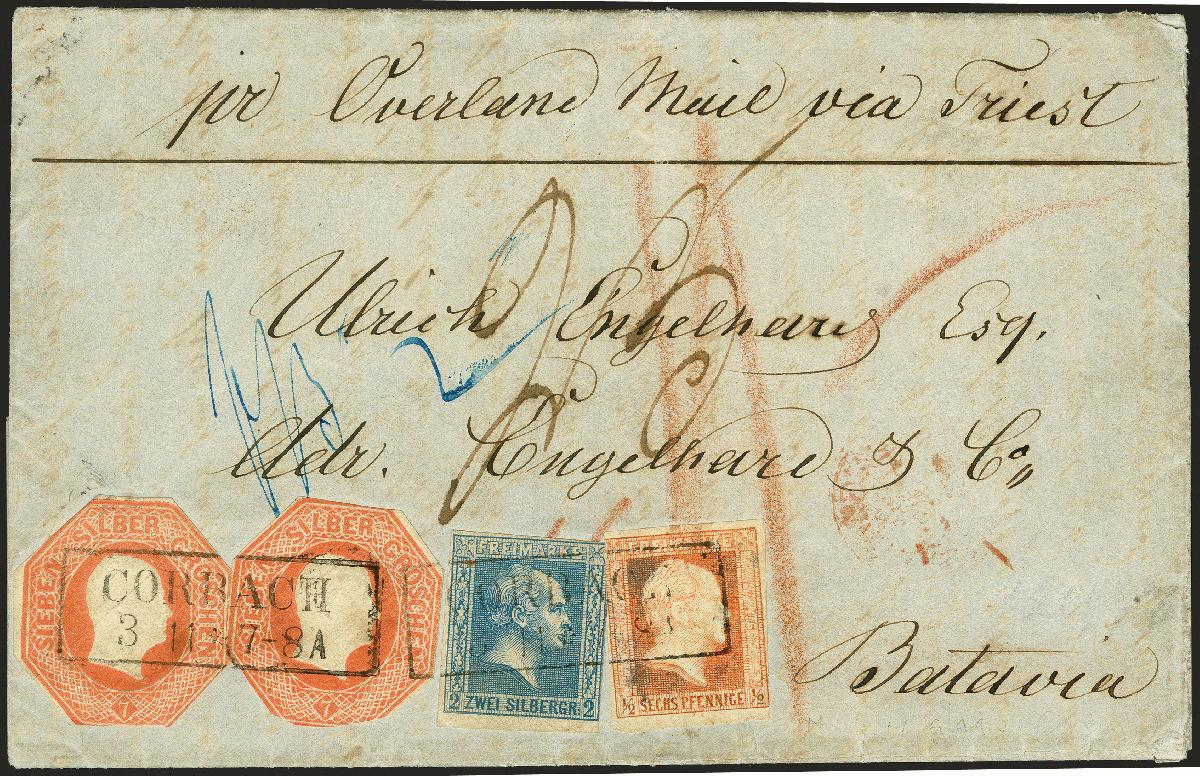 pr Overland Mail via Triest
Ulrich Engelhard Esq.
Adr. Engelhard & Co„
Batavia
SIEBEN SILBER GROSCHEN
7
SILBER GROSCHEN
7
CORBACH
3 11 * 7-8 A
FREIMARKE
2 ZWEI SILBERGR. 2
½ SECHS PFENNIGE ½